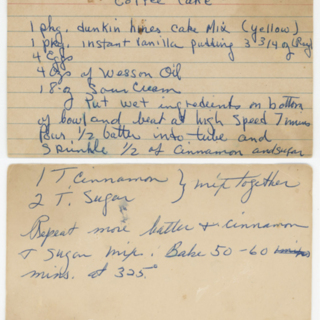 Coffee Cake
1 pkg. dunkin hines Cake Mix (yellow)
1 pkg. instant vanilla pudding 3 3/4 oz (Reg)
4 Eggs
4 ozs of Wesson Oil
1 8 oz Sour Cream
Put wet ingredients on bottom
of bowl and beat at high speed 7 minutes
Pour 1/2 batter into tube and
Sprinkle 1/2 of Cinnamon and Sugar
1 T. Cinnamon } mix together
2 T. Sugar
Repeat more batter + cinnamon
+ Sugar mix. Bake 50-60
mins. at 325°